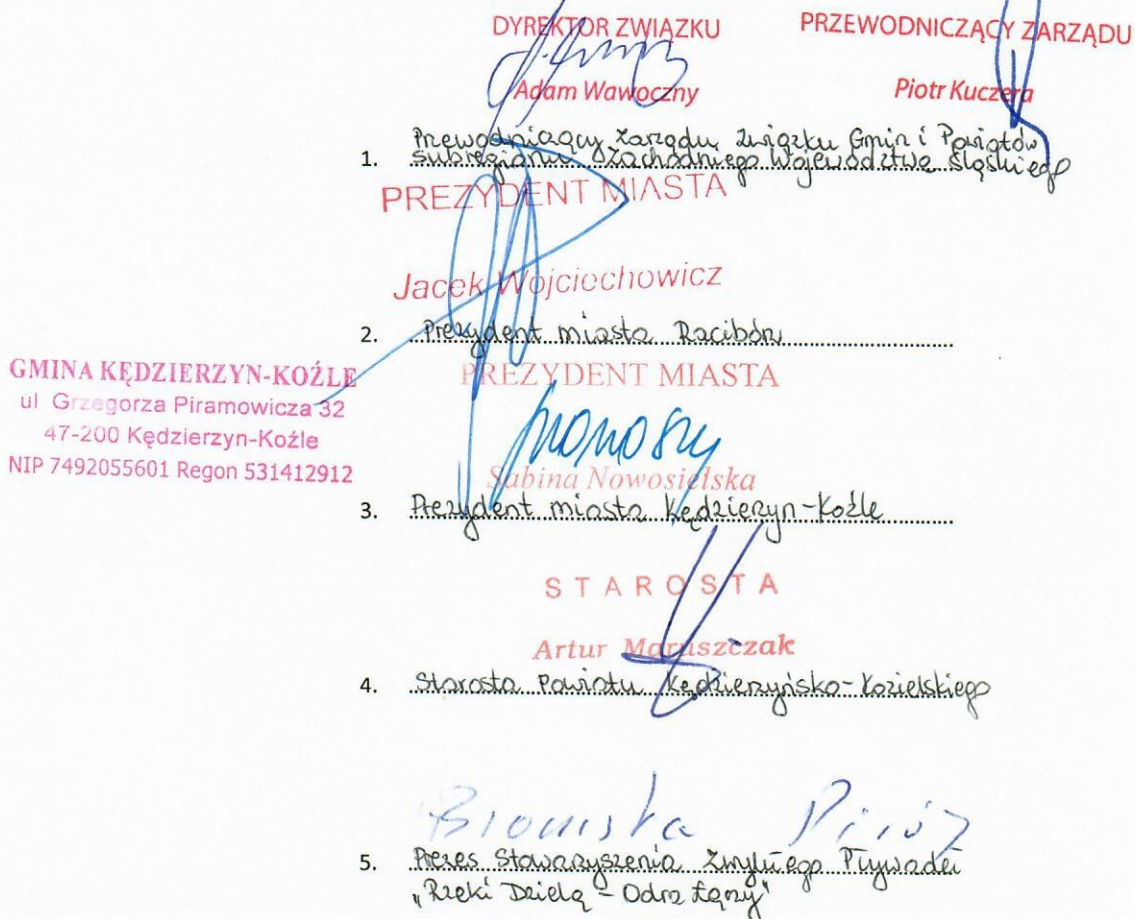 DYREKTOR ZWIĄZKU
Adam Wawoczny
PRZEWODNICZĄCY ZARZĄDU
Piotr Kuczera
1. Przewodniczący Zarządu Związku Gmin i Powiatów
Subregionu Zachodniego Województwa Śląskiego
PREZYDENT MIASTA
Jacek Wojciechowicz
2. Prezydent miasta Racibórz
GMINA KĘDZIERZYN-KOŹLE
ul Grzegorza Piramowicza 32
47-200 Kędzierzyn-Koźle
NIP 7492055601 Regon 531412912
PREZYDENT MIASTA
Sabina Nowosielska
3. Prezydent miasta Kędzierzyn-Koźle
STAROSTA
Artur Maruszczak
4. Starosta Powiatu Kędzierzyńsko-Kozielskiego
5. Prezes Stowarzyszenia Zwykłego Pływadeł
"Rzeki Dzielą - Odra Łączy"